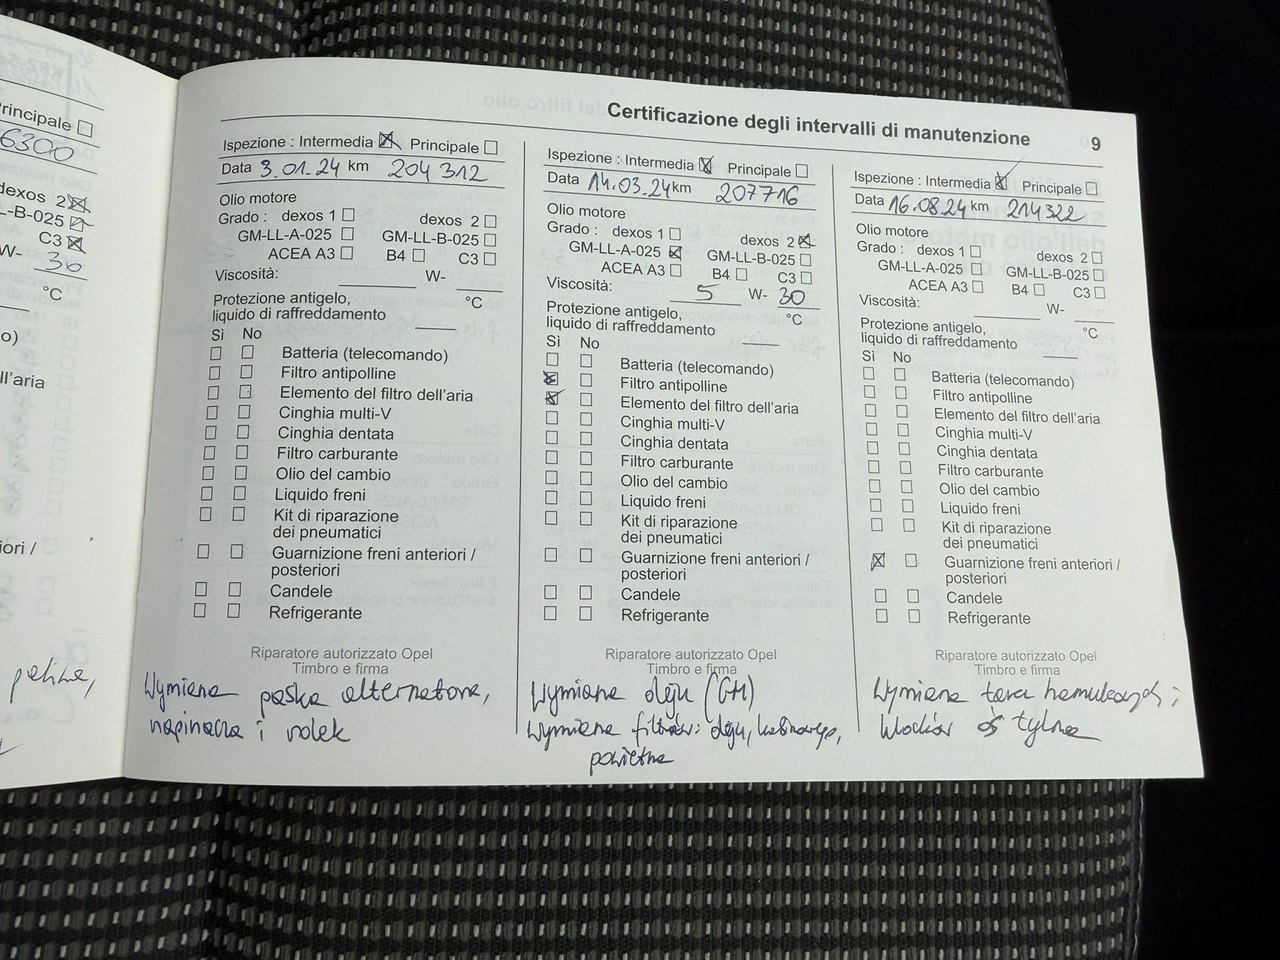 rincipale ☐
6300
dexos 2 ☒
L-B-025 ☒
C3 ☒
W- 30
°C
o)
ll'aria
iori /
Certificazione degli intervalli di manutenzione 9
Ispezione : Intermedia ☒ Principale ☐
Data 3.01.24 km 204 312
Olio motore
Grado : dexos 1 ☐ dexos 2 ☐
GM-LL-A-025 ☐ GM-LL-B-025 ☐
ACEA A3 ☐ B4 ☐ C3 ☐
Viscosità: W-
Protezione antigelo, °C
liquido di raffreddamento
Sì No
☐ ☐ Batteria (telecomando)
☐ ☐ Filtro antipolline
☐ ☐ Elemento del filtro dell'aria
☐ ☐ Cinghia multi-V
☐ ☐ Cinghia dentata
☐ ☐ Filtro carburante
☐ ☐ Olio del cambio
☐ ☐ Liquido freni
☐ ☐ Kit di riparazione
dei pneumatici
☐ ☐ Guarnizione freni anteriori /
posteriori
☐ ☐ Candele
☐ ☐ Refrigerante
Riparatore autorizzato Opel
Timbro e firma
Wymiana paska alternatora,
napinacza i rolek
Ispezione : Intermedia ☒ Principale ☐
Data 14.03.24 km 207716
Olio motore
Grado : dexos 1 ☐ dexos 2 ☒
GM-LL-A-025 ☒ GM-LL-B-025 ☐
ACEA A3 ☐ B4 ☐ C3 ☐
Viscosità: 5 W- 30
Protezione antigelo, °C
liquido di raffreddamento
Sì No
☐ ☐ Batteria (telecomando)
☒ ☐ Filtro antipolline
☒ ☐ Elemento del filtro dell'aria
☐ ☐ Cinghia multi-V
☐ ☐ Cinghia dentata
☐ ☐ Filtro carburante
☐ ☐ Olio del cambio
☐ ☐ Liquido freni
☐ ☐ Kit di riparazione
dei pneumatici
☐ ☐ Guarnizione freni anteriori /
posteriori
☐ ☐ Candele
☐ ☐ Refrigerante
Riparatore autorizzato Opel
Timbro e firma
Wymiana oleju (GM)
Wymiana filtrów: oleju, kabinowego,
powietrza
Ispezione : Intermedia ☒ Principale ☐
Data 16.08.24 km 214322
Olio motore
Grado : dexos 1 ☐ dexos 2 ☐
GM-LL-A-025 ☐ GM-LL-B-025 ☐
ACEA A3 ☐ B4 ☐ C3 ☐
Viscosità: W-
Protezione antigelo, °C
liquido di raffreddamento
Sì No
☐ ☐ Batteria (telecomando)
☐ ☐ Filtro antipolline
☐ ☐ Elemento del filtro dell'aria
☐ ☐ Cinghia multi-V
☐ ☐ Cinghia dentata
☐ ☐ Filtro carburante
☐ ☐ Olio del cambio
☐ ☐ Liquido freni
☐ ☐ Kit di riparazione
dei pneumatici
☒ ☐ Guarnizione freni anteriori /
posteriori
☐ ☐ Candele
☐ ☐ Refrigerante
Riparatore autorizzato Opel
Timbro e firma
Wymiana tarcz hamulcowych i
klocków oś tylna